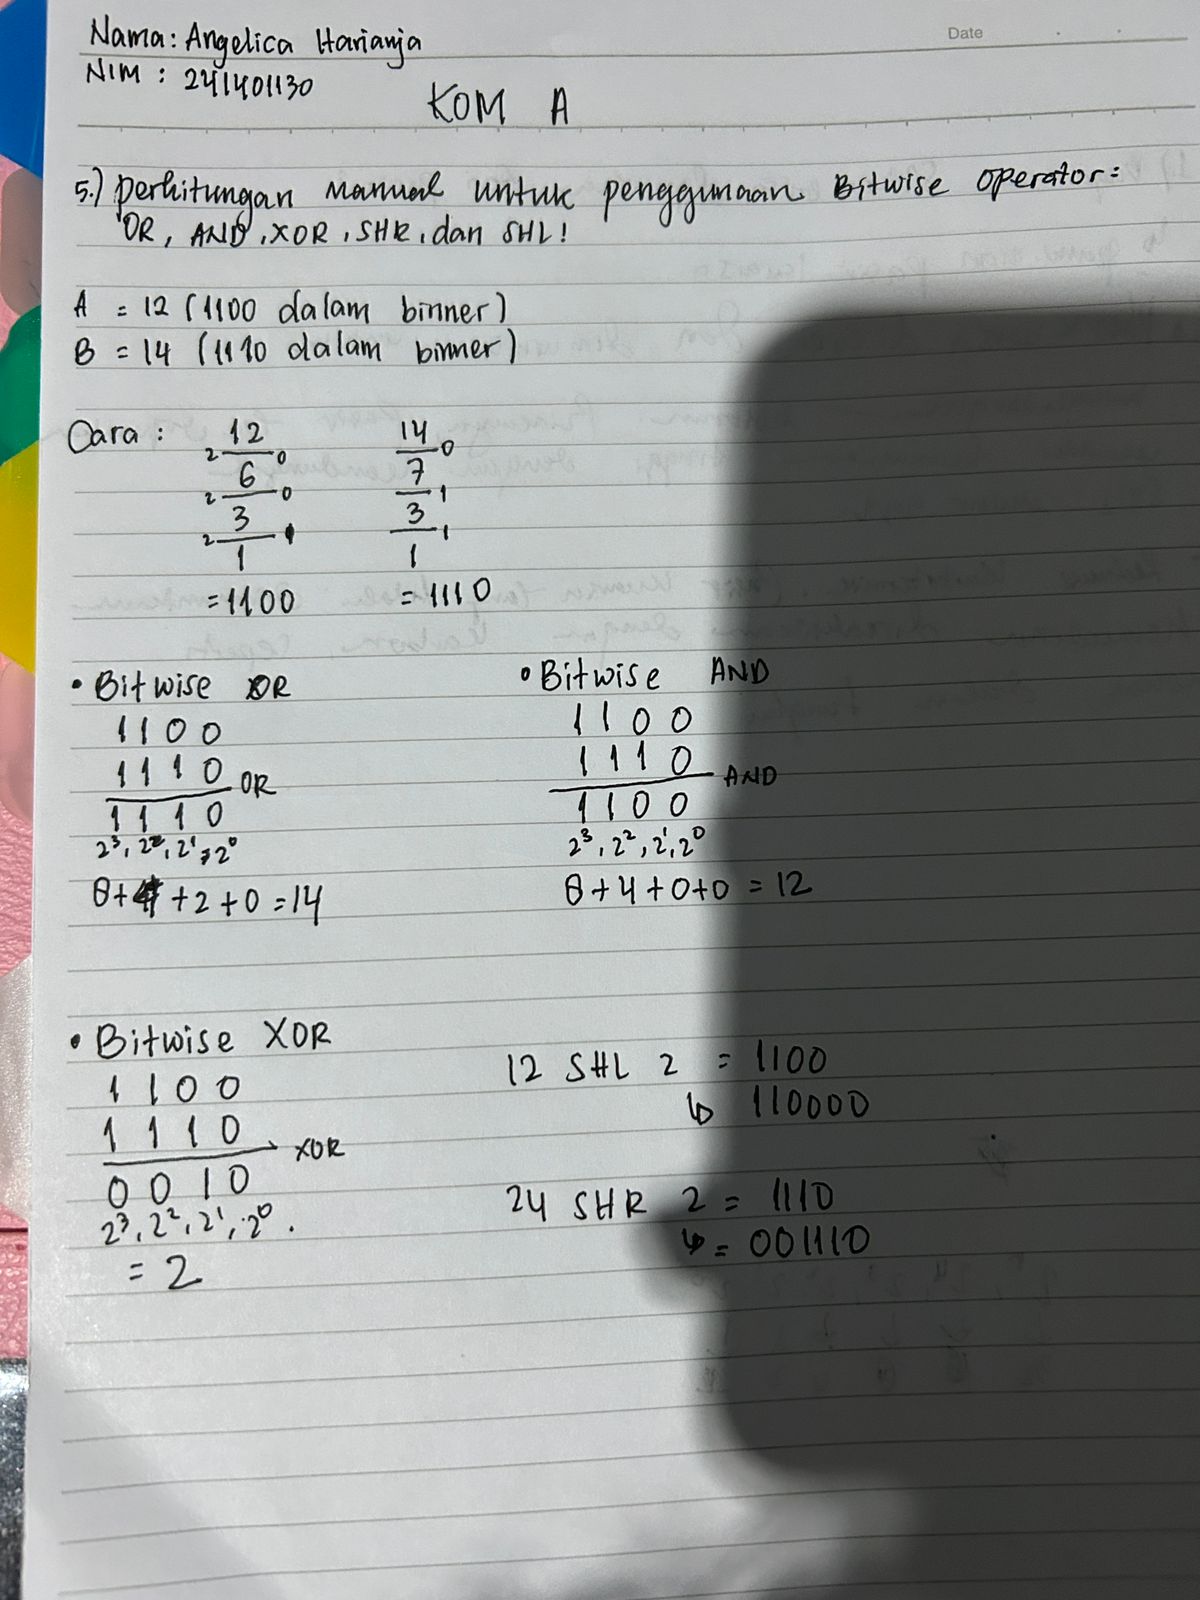 Date
Nama: Angelica Harianja
NIM : 241401130
KOM A
5.) perhitungan Manual untuk penggunaan Bitwise operator:
OR, AND, XOR, SHR, dan SHL!
A = 12 (1100 dalam binner)
B = 14 (1110 dalam binner)
Cara :
2 12 0
2 6 0
2 3 1
1
= 1100
14 0
7 1
3 1
1
= 1110
• Bitwise OR
1 1 0 0
1 1 1 0 OR
1 1 1 0
2³, 2², 2¹, 2⁰
8+4+2+0=14
• Bitwise AND
1 1 0 0
1 1 1 0 AND
1 1 0 0
2³, 2², 2¹, 2⁰
8+4+0+0 = 12
• Bitwise XOR
1 1 0 0
1 1 1 0 XOR
0 0 1 0
2³, 2², 2¹, 2⁰.
= 2
12 SHL 2 = 1100
↳ 110000
24 SHR 2 = 1110
↳ = 001110